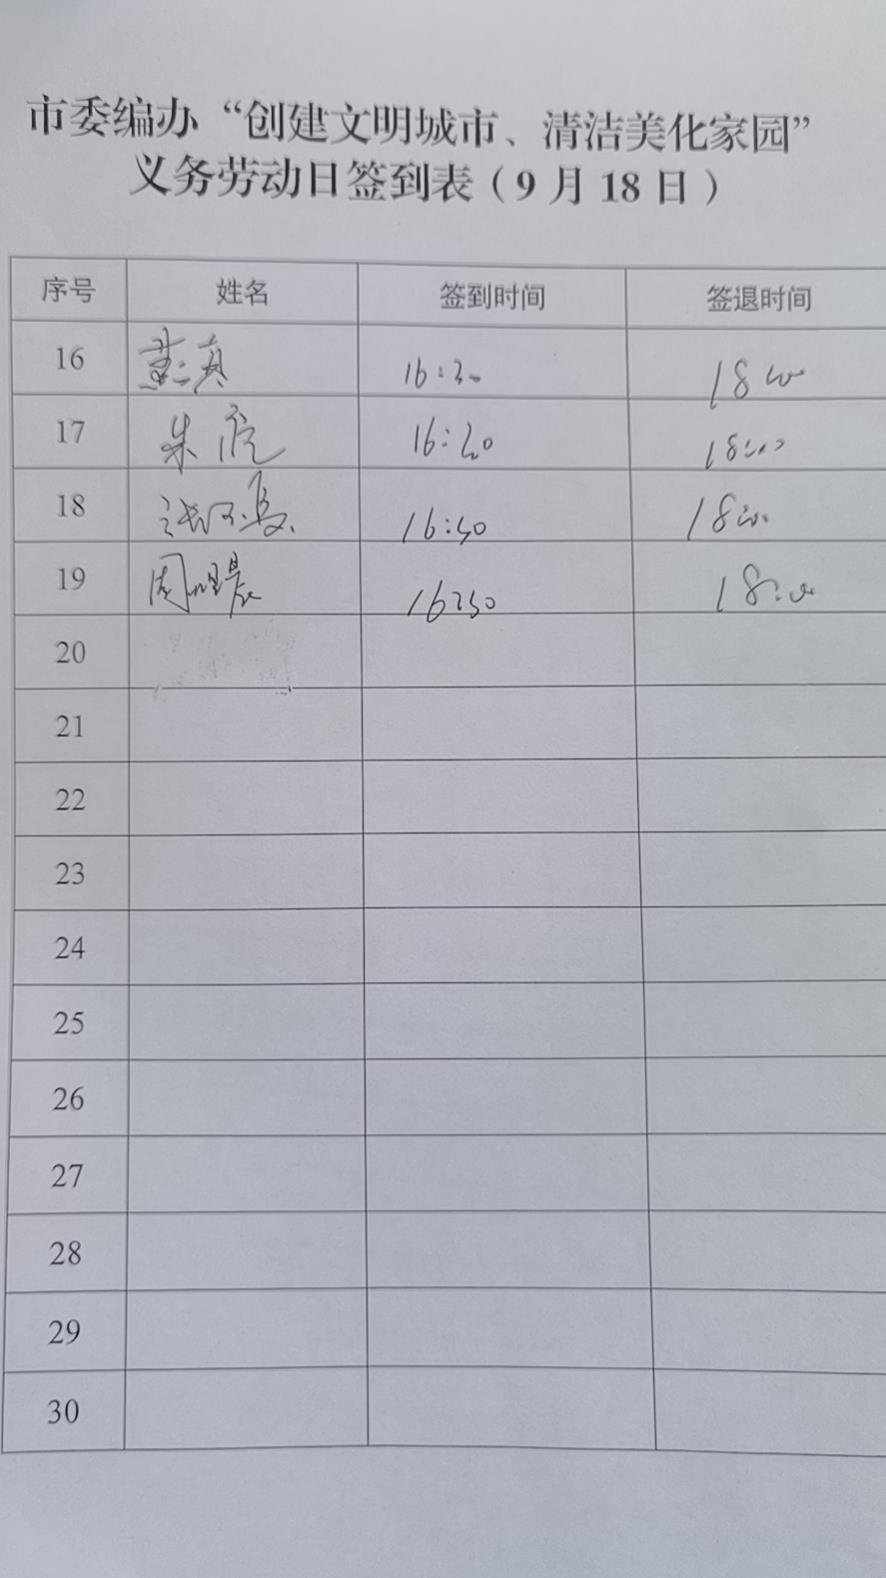 市委编办“创建文明城市、清洁美化家园”
义务劳动日签到表（9月18日）
序号 姓名 签到时间 签退时间
16 16:30 18:00
17 朱 16:20 18:00
18 16:50 18:00
19 周明晨 16:50 18:00
20
21
22
23
24
25
26
27
28
29
30